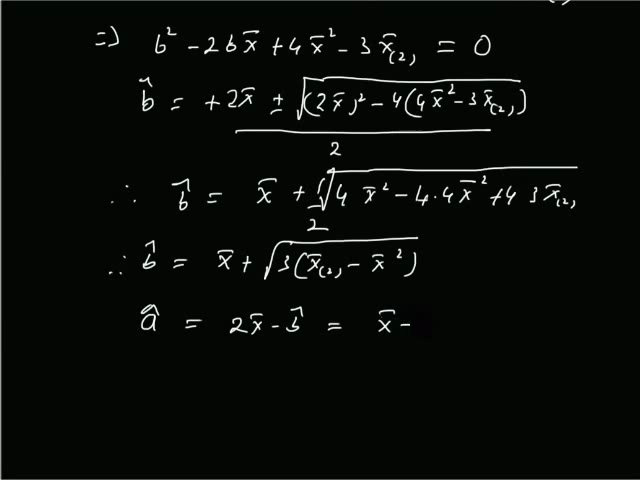 ⇒ b² - 2b x̄ + 4x̄² - 3x̄₍₂₎ = 0
b̂ = +2x̄ ± √((2x̄)² - 4(4x̄² - 3x̄₍₂₎)) / 2
∴ b̂ = x̄ + ½√(4 x̄² - 4·4x̄² + 4 3x̄₍₂₎)
∴ b̂ = x̄ + √(3(x̄₍₂₎ - x̄²))
â = 2x̄ - b̂ = x̄ -